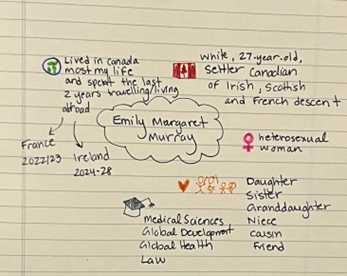 Lived in Canada
most my life
and spent the last
2 years travelling/living
abroad
France
2022/23
Ireland
2024-28
white, 27-year-old,
settler Canadian
of Irish, Scottish
and French descent
Emily Margaret
Murray
heterosexual
woman
Daughter
Sister
Granddaughter
Niece
Cousin
Friend
Medical Sciences
Global Development
Global Health
Law